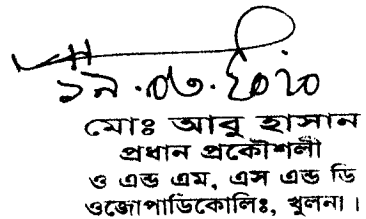 ১৯.০৩.২০২০
মোঃ আবু হাসান
প্রধান প্রকৌশলী
ও এন্ড এম, এস এন্ড ডি
ওজোপাডিকোলিঃ, খুলনা।